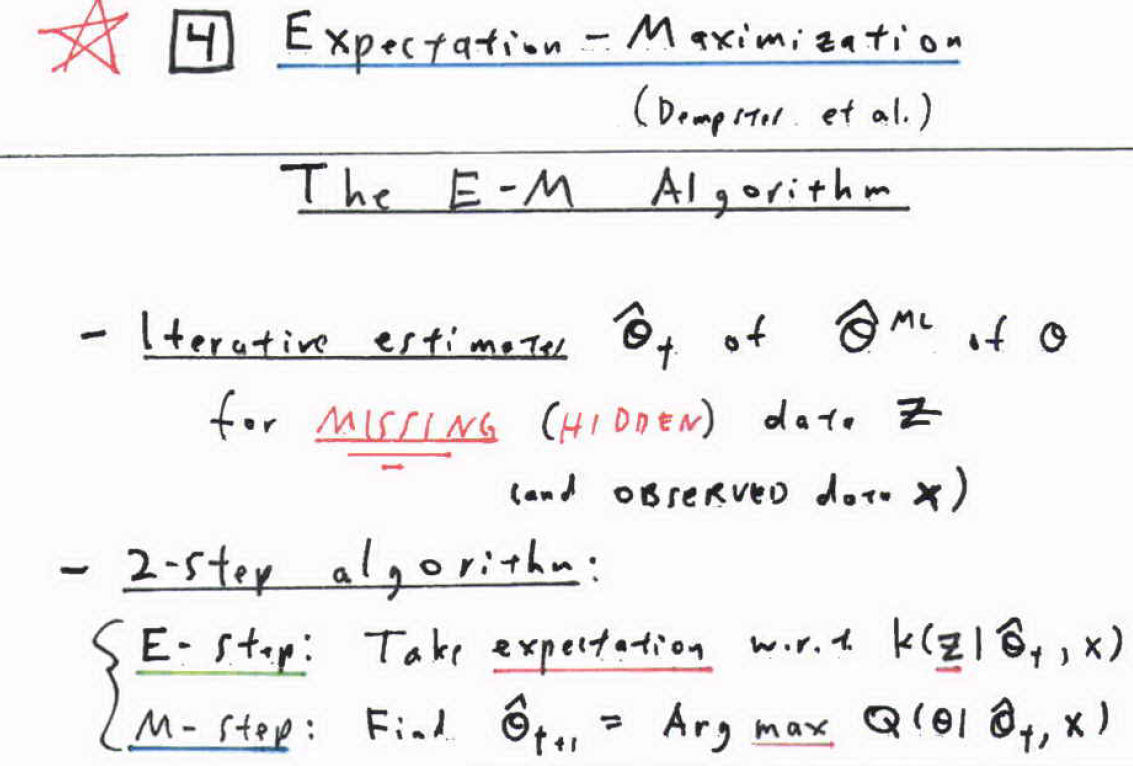 4 Expectation - Maximization
(Dempster et al.)
The E-M Algorithm
- Iterative estimates θ̂ₜ of θ̂ᴹᴸ of θ
for MISSING (HIDDEN) data Z
(and OBSERVED data x)
- 2-step algorithm:
E-step: Take expectation w.r.t. k(z|θ̂ₜ, x)
M-step: Find θ̂ₜ₊₁ = Arg max Q(θ|θ̂ₜ, x)